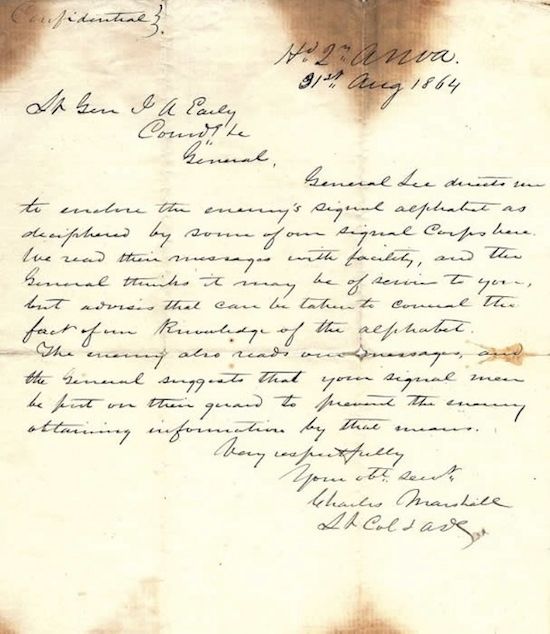 Confidential}
Hd Qrs ANVa.
31st Aug 1864
Lt Gen J A Early
Comdg &c
General,
General Lee directs me
to enclose the enemy's signal alphabet as
deciphered by some of our signal Corps here.
We read their messages with facility, and the
General thinks it may be of service to you,
but advises that care be taken to conceal the
fact of our knowledge of the alphabet.
The enemy also reads our messages, and
the General suggests that your signal men
be put on their guard to prevent the enemy
obtaining information by that means.
Very respectfully
Your obt. servt.
Charles Marshall
Lt Col & ADC